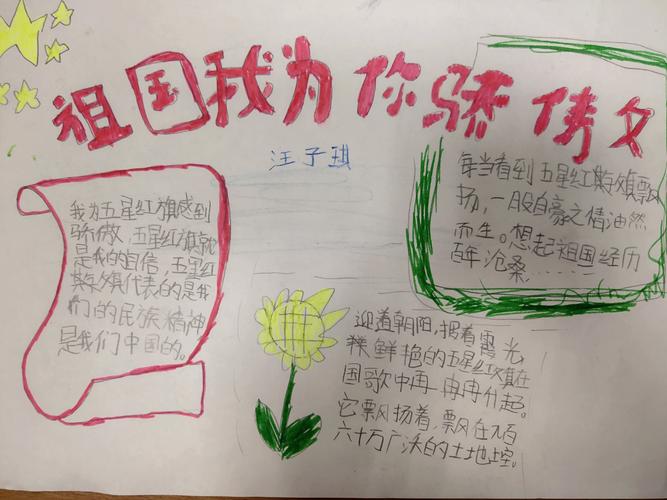 祖国我为你骄傲
汪子琪
我为五星红旗感到
骄傲,五星红旗就
是我的自信,五星红
旗代表的是我
们的民族精神
是我们中国的。
每当看到五星红旗飘
扬,一股自豪之情油然
而生。想起祖国经历
百年沧桑……
迎着朝阳,披着霞光,
鲜艳的五星红旗在
国歌中再冉冉升起。
它飘扬着,飘在九百
六十万广沃的土地上空。